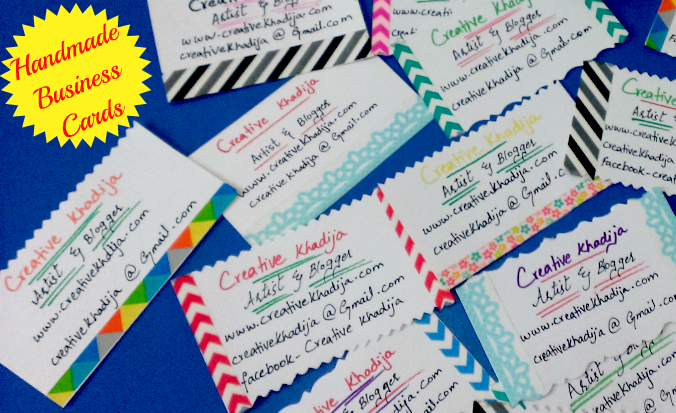 Handmade
Business
Cards
Creative Khadija
Artist & Blogger
www.creativekhadija.com
creativekhadija @ Gmail.com
www.creati
creat
Creative Khadija
Artist & Blogger
www.creativekhadija.com
creativekhadija @ Gmail.com
Creative Khadija
Artist & Blogger
www.creativekhadija.com
creativekhadija @ Gmail.com
Creative Khadija
Artist & Blogger
www.creativekhadija.com
creativekhadija @ Gmail.com
Creative Khadija
Artist & Blogger
www.creativekhadija.com
creativekhadija @ Gmail.com
Creative Kh
Artist &
www.creativek
creativekhadija
facebook-creat
Creative Khadija
Artist & Blogger
www.creativekhadija.com
creativekhadija @ Gmail.com
facebook- Creative Khadija
Creative Khadija
Artist & Blogger
www.creativekhadija.com
creativekhadija @ Gmail.com
Creative Khadija
Artist & Blogger
www.creativekhadija.com
creativekhadija @ Gmail.com
Artist
www.creativekhadija.com